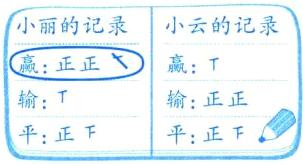 小丽的记录
赢：正正
输：丅
平：正下
小云的记录
赢：丅
输：正正
平：正下